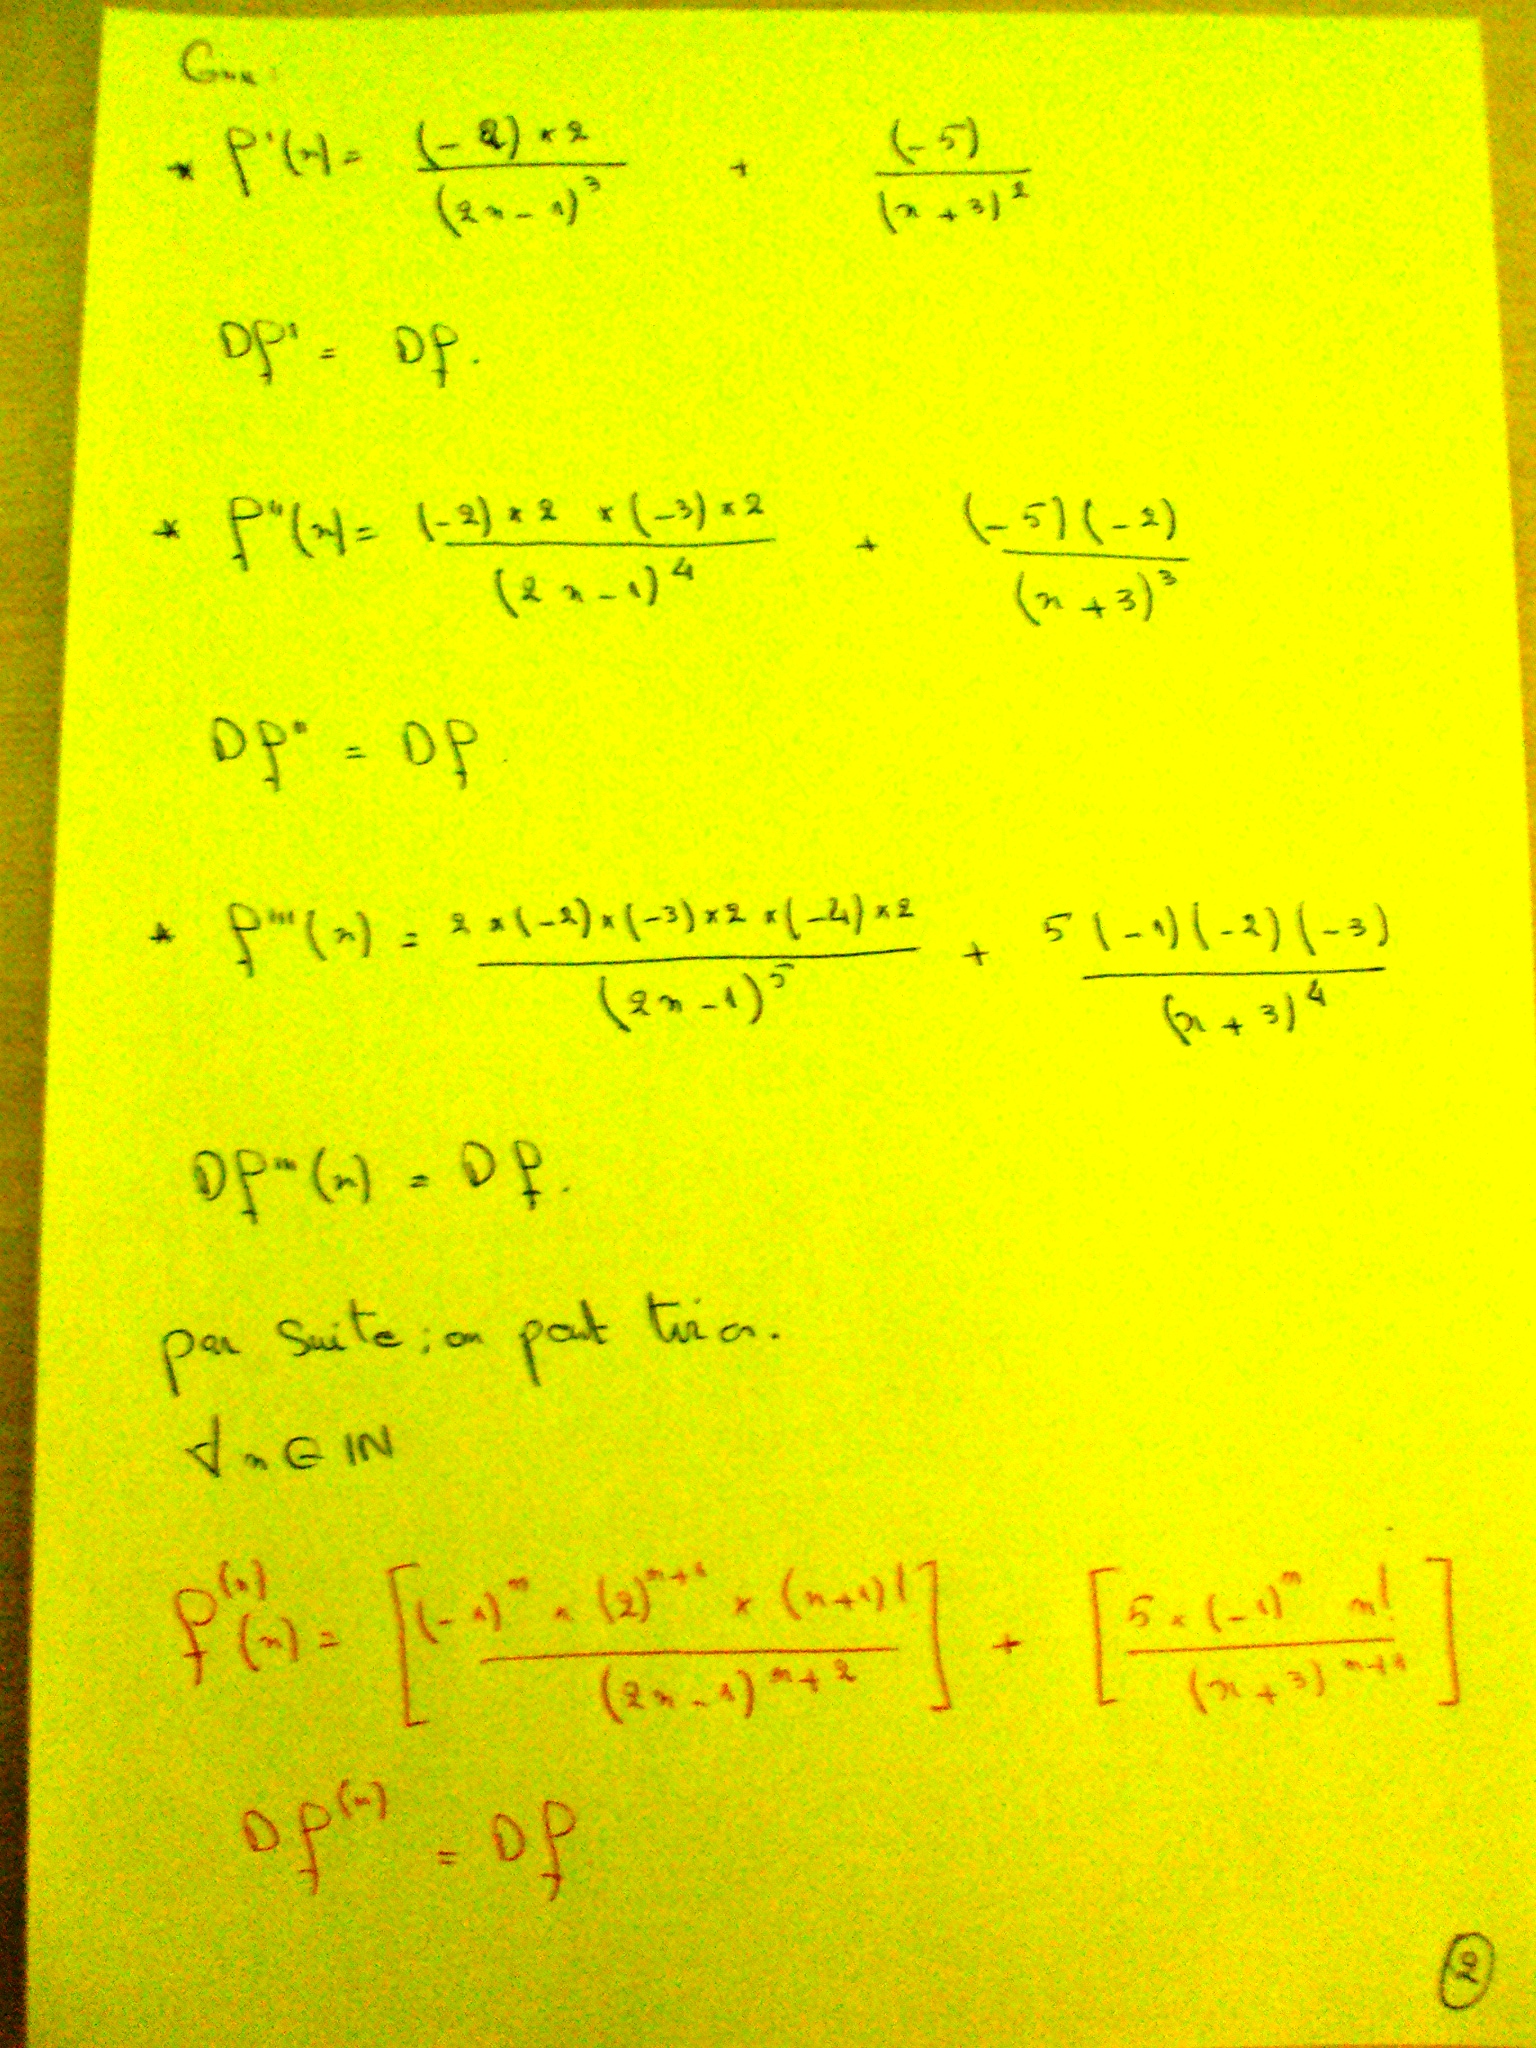 * f'(x) = (-2) × 2 / (2x - 1)^3 + (-5) / (x + 3)^2
Df' = Df.
* f''(x) = (-2) × 2 × (-3) × 2 / (2x - 1)^4 + (-5)(-2) / (x + 3)^3
Df'' = Df.
* f'''(x) = 2 × (-2) × (-3) × 2 × (-4) × 2 / (2x - 1)^5 + 5(-1)(-2)(-3) / (x + 3)^4
Df'''(x) = Df.
par suite ; on peut tirer.
∀ n ∈ IN
f^(n)(x) = [(-1)^n × (2)^n+1 × (n+1)! / (2x - 1)^n+2] + [5 × (-1)^n n! / (x + 3)^n+1]
Df^(n) = Df
2